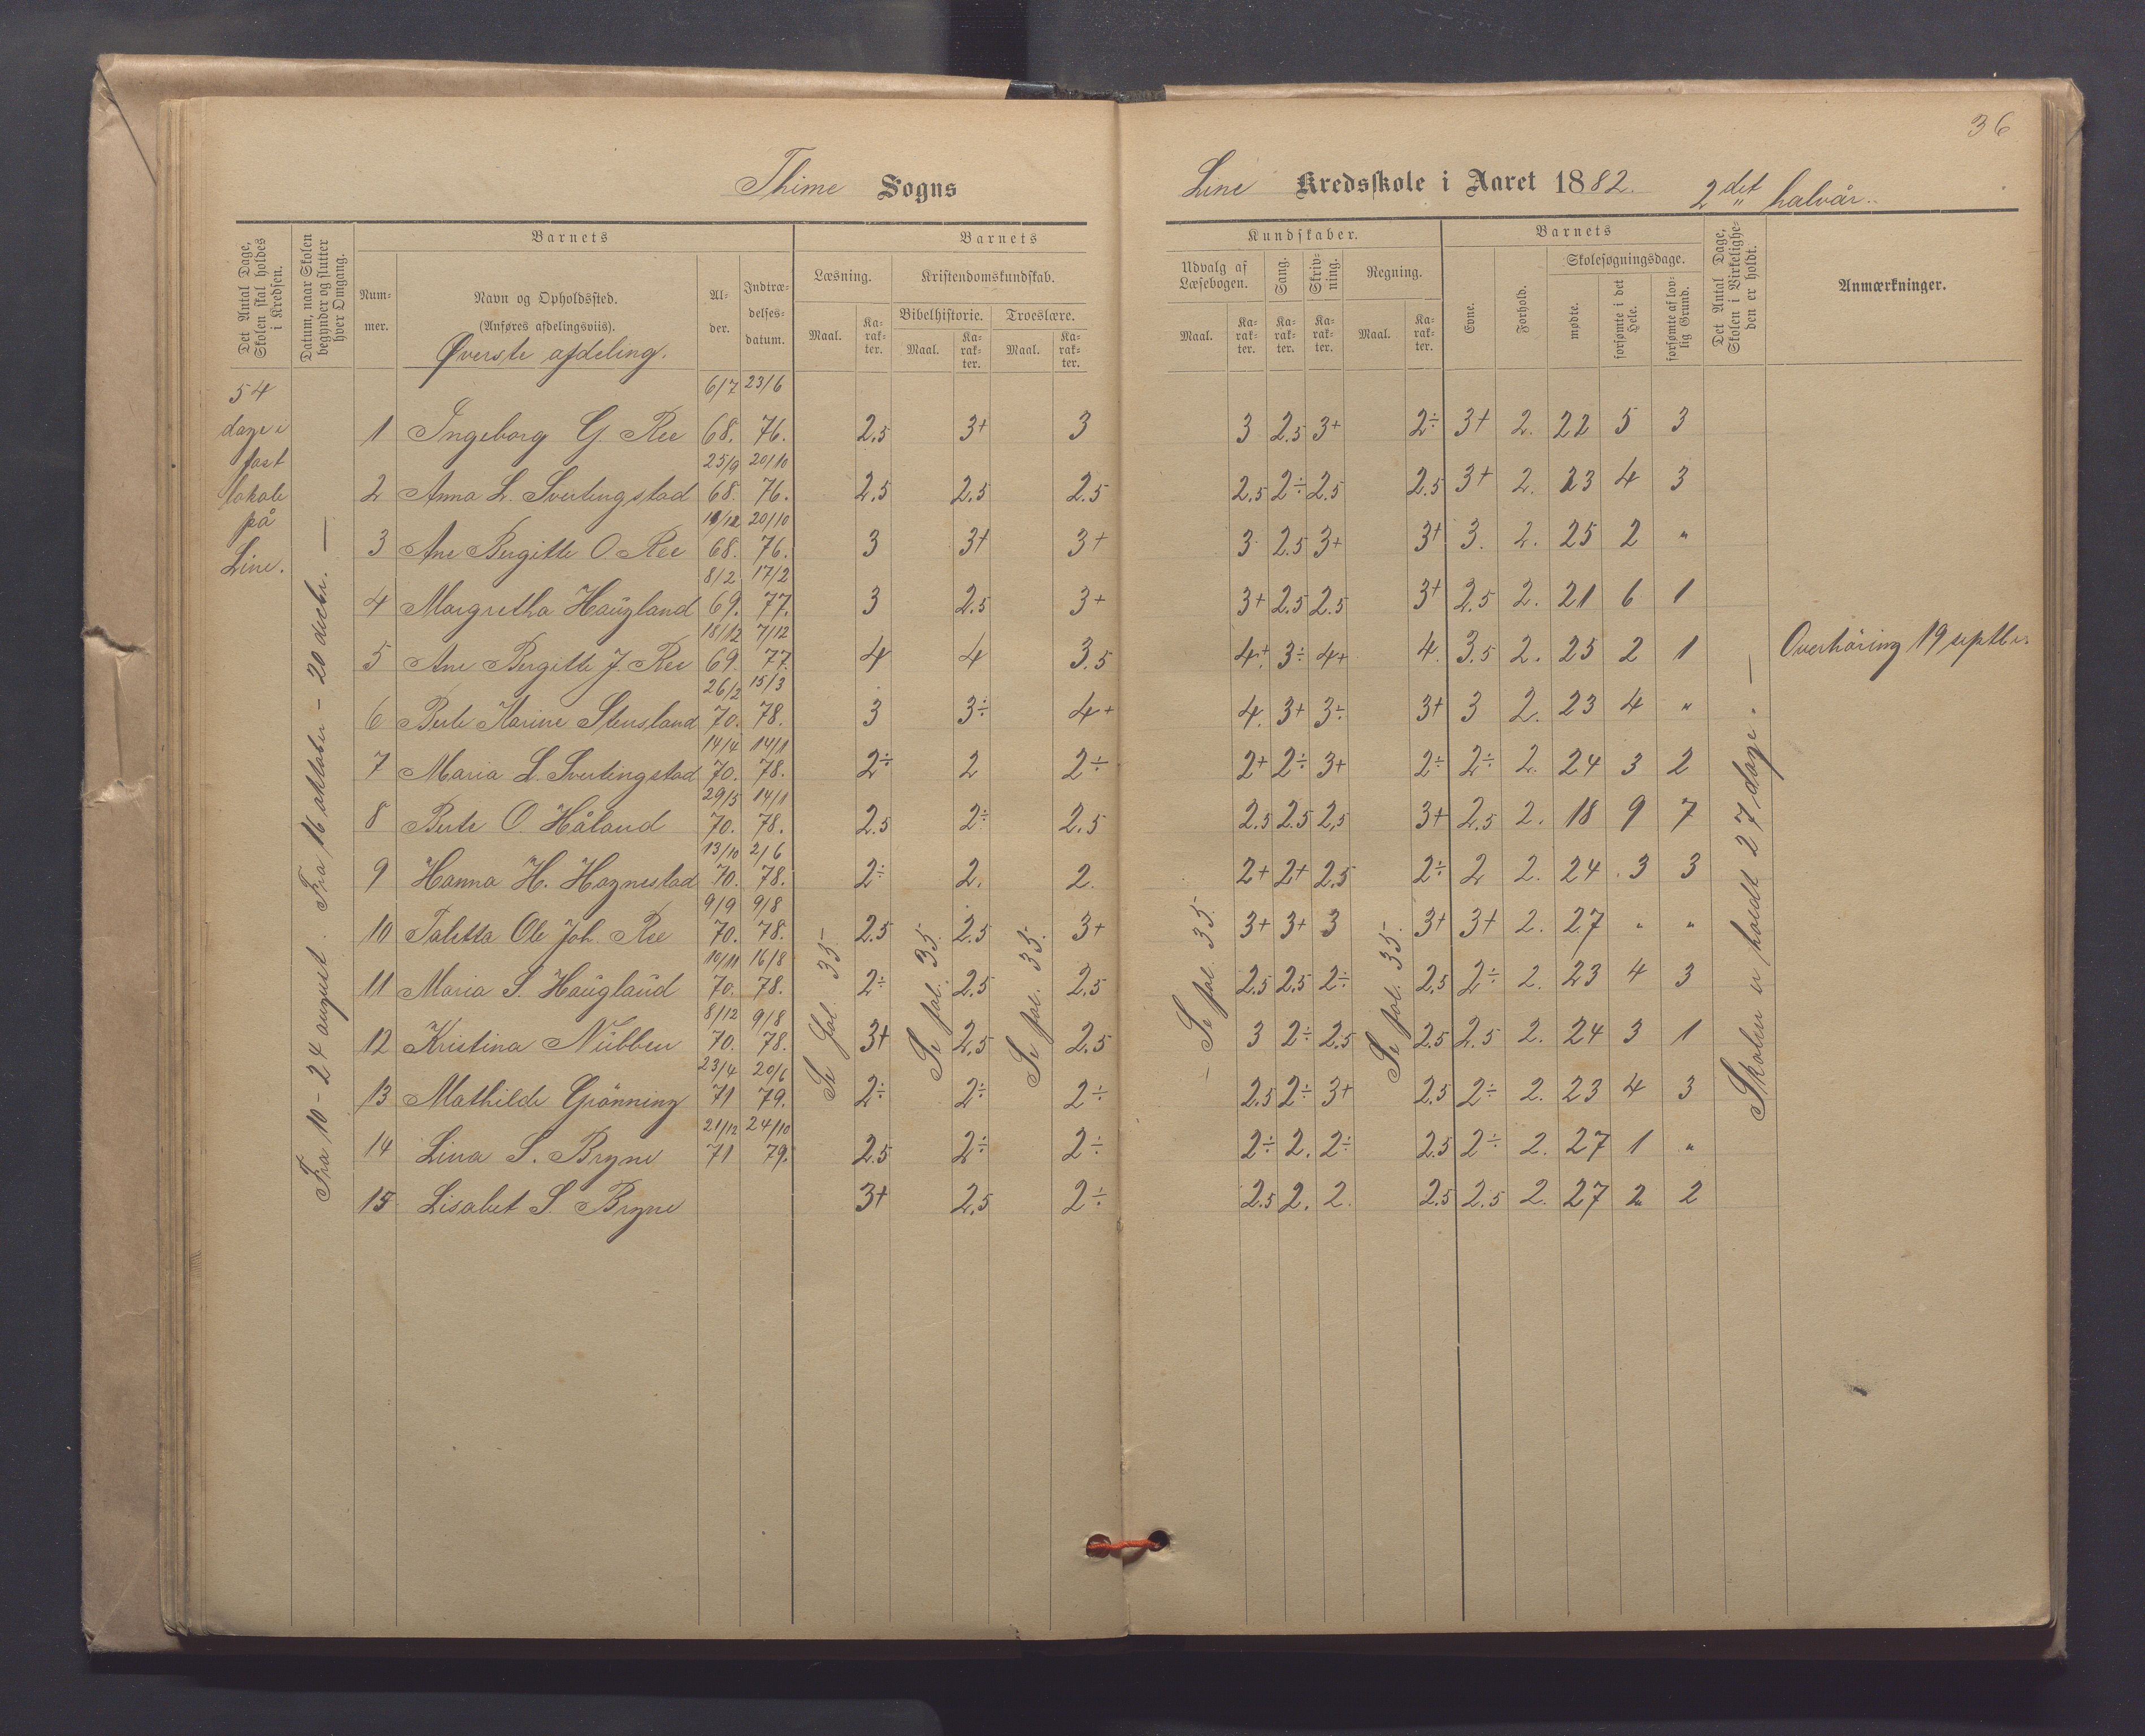 36
Thime Sogns
Line Kredsskole i Aaret 1882. 2det halvår.
Det Antal Dage, Skolen skal holdes i Kredsen.
Datum, naar Skolen begynder og slutter hver Omgang.
Barnets
Nummer.
Navn og Opholdssted.
(Anføres afdelingsviis).
Øverste afdeling.
Alder.
Indtrædelsesdatum.
Barnets
Læsning.
Kristendomskundskab.
Bibelhistorie.
Troeslære.
Maal.
Karakter.
Maal.
Karakter.
Maal.
Karakter.
Kundskaber.
Udvalg af Læsebogen.
Sang.
Skrivning.
Regning.
Maal.
Karakter.
Karakter.
Karakter.
Maal.
Karakter.
Barnets
Evne.
Forhold.
Skolesøgningsdage.
mødte.
forsømte i det Hele.
forsømte af lovlig Grund.
Det Antal Dage, Skolen i Virkeligheden er holdt.
Anmærkninger.
54
dage i
fast
lokale
på
Line.
Fra 10 - 24 august. Fra 16 oktober - 20 decbr. —
6/7 23/6
1 Ingeborg G. Ree 68. 76. 2.5 3+ 3 3 2.5 3+ 2÷ 3+ 2. 22 5 3
25/9 20/10
2 Anna L. Svertingstad 68. 76. 2.5 2.5 2.5 2.5 2÷ 2.5 2.5 3+ 2. 23 4 3
11/12 20/10
3 Ane Bergitte O. Ree 68. 76. 3 3+ 3+ 3 2.5 3+ 3+ 3. 2. 25 2 "
8/2 17/2
4 Margretha Haugland 69. 77. 3 2.5 3+ 3+ 2.5 2.5 3+ 2.5 2. 21 6 1
18/12 7/12
5 Ane Bergitte J. Ree 69. 77. 4 4 3.5 4+ 3÷ 4+ 4. 3.5 2. 25 2 1 Overhöring 19 septbr.
26/2 15/3
6 Berte Karine Stensland 70. 78. 3 3÷ 4+ 4. 3+ 3÷ 3+ 3 2. 23 4 "
14/4 14/1
7 Maria L. Svertingstad 70. 78. 2÷ 2 2÷ 2+ 2÷ 3+ 2÷ 2÷ 2. 24 3 2
29/5 14/1
8 Berte O. Håland 70. 78. 2.5 2÷ 2.5 2.5 2.5 2.5 3+ 2.5 2. 18 9 7
13/10 2/6
9 Hanna H. Hognestad 70. 78. 2÷ 2. 2. 2+ 2+ 2.5 2÷ 2 2. 24 3 3
9/9 9/8
10 Taletta Ole Joh. Ree 70. 78. 2.5 2.5 3+ 3+ 3+ 3 3+ 3+ 2. 27 " "
10/11 16/8
11 Maria S. Haugland 70. 78. 2÷ 2.5 2.5 2.5 2.5 2÷ 2.5 2÷ 2. 23 4 3
8/12 9/8
12 Kristina Nubben 70. 78. 3+ 2.5 2.5 3 2÷ 2.5 2.5 2.5 2. 24 3 1
23/4 20/6
13 Mathilde Grönning 71 79. 2÷ 2÷ 2÷ 2.5 2÷ 3+ 2.5 2÷ 2. 23 4 3
21/12 24/10
14 Lina S. Bryne 71 79. 2.5 2÷ 2÷ 2÷ 2. 2÷ 2.5 2÷ 2. 27 1 "
15 Lisabet S. Bryne 3+ 2.5 2÷ 2.5 2. 2. 2.5 2.5 2. 27 2 2
Se fol. 35
Se fol. 35.
Se fol. 35.
Se fol. 35.
Se fol. 35.
Skolen er holdt 27 dage. —